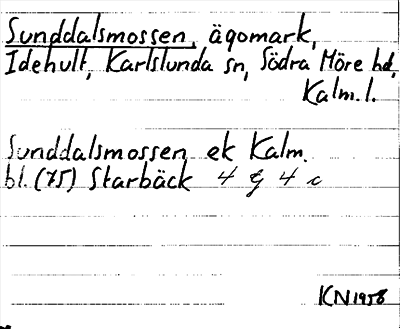 Sunddalsmossen, ägomark,
Idehult, Karlslunda sn, Södra Möre hd,
Kalm. l.
Sunddalsmossen ek Kalm.
bl. (75) Starbäck 4 G 4 c
KN 1958